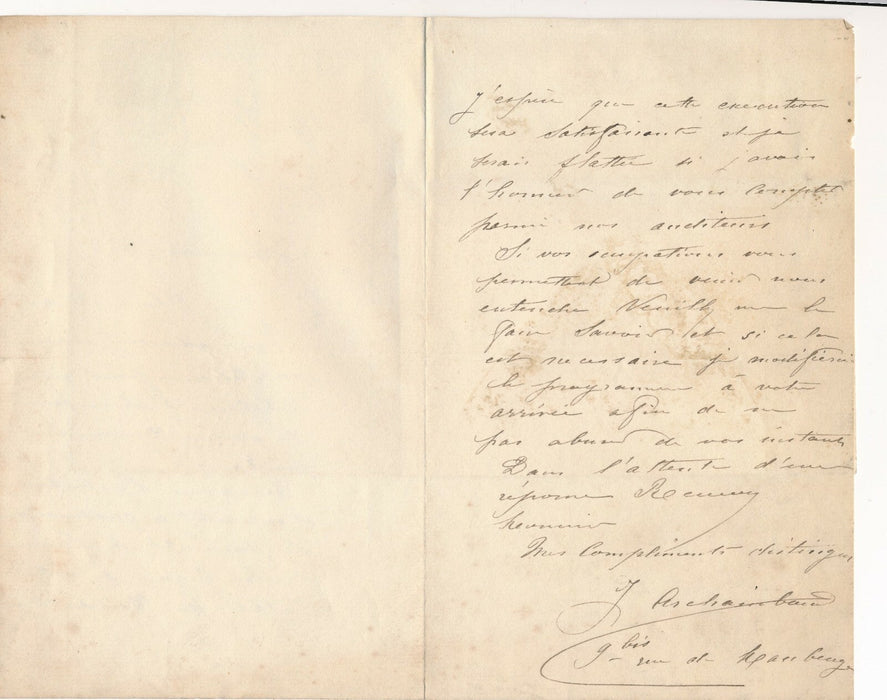 J'espère que cette execution
sera satisfaisante et je
serais flatté si j'avais
l'honneur de vous compter
parmi nos auditeurs
Si vos occupations vous
permettent de venir nous
entendre Veuillez me le
faire savoir et si cela
est necessaire je modifierai
le programme à votre
arrivée afin de ne
pas abuser de vos instants
Dans l'attente d'une
réponse Recevez
Monsieur
Mes Compliments distingués
J Archainbaud
9 bis rue de Maubeuge